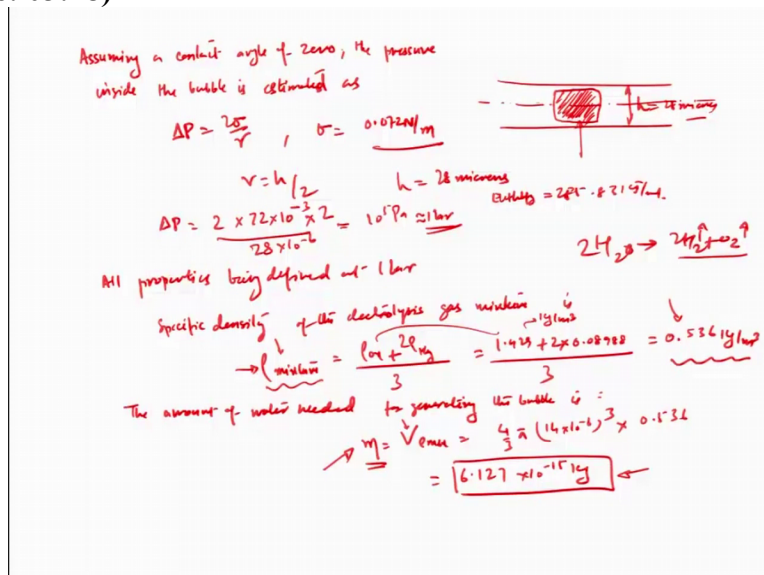 Assuming a contact angle of zero, the pressure
inside the bubble is estimated as
ΔP = 2σ/r , σ = 0.072N/m
r = h/2 h = 28 microns
h = 28 microns
Enthalpy = 285.8
ΔP = 2 × 72×10⁻³ × 2 / 28×10⁻⁶ = 10⁵Pa ≈ 1bar
2H₂O → 2H₂↑ + O₂↑
All properties being defined at 1bar
Specific density of the electrolysis gas mixture is
ρmixture = ρox + 2ρhy / 3 = 1.429 + 2×0.08988 / 3 = 0.536 kg/m³
kg/m³
The amount of water needed for generating this bubble is :
m = V = 4/3 π (14×10⁻⁶)³ × 0.536
= 6.127 ×10⁻¹⁵ kg